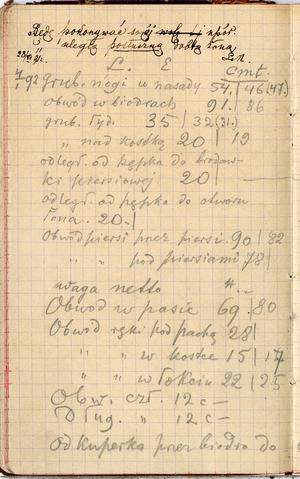 Będę pokonywać swój upór
uległa posłuszna dobra żona
L. E. cmt.
grub. nogi w nasady 54. | 46 (47.)
obwód w biodrach 91. | 86
grub. łyd. 35 | 32 (31.)
„ nad kostką 20 | 19
odległ. od pępka do brodaw-
ki piersiowej 20 | —
odległ. od pępka do otworu
łona. 20. |
Obwód piersi przez piersi. 90 | 82
„ „ pod piersiami 78 |
uwaga netto
Obwód w pasie 69. 80
Obwód ręki pod pachą 28 |
„ „ w kostce 15 | 17
„ „ w łokciu 22 | 25
Obw. czł. 12 c —
Dług. „ 12 c —
od kuperka przez biodra do